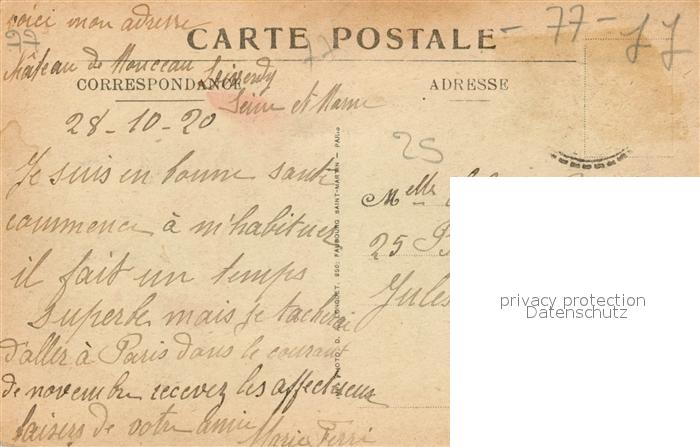 voici mon adresse
- 77 -
CARTE POSTALE
77
Château de Monceau
CORRESPONDANCE
ADRESSE
Seine et Marne
28-10-20
25
Je suis en bonne santé
commence à m'habituer
il fait un temps
superbe mais je tacherai
d'aller à Paris dans le courant
de novembre recevez les affectueux
baisers de votre amie
Marie Ferri
PHOTO D. A. LONGUET, 250, FAUBOURG SAINT-MARTIN — PARIS
Melle
25
Jules
privacy protection
Datenschutz